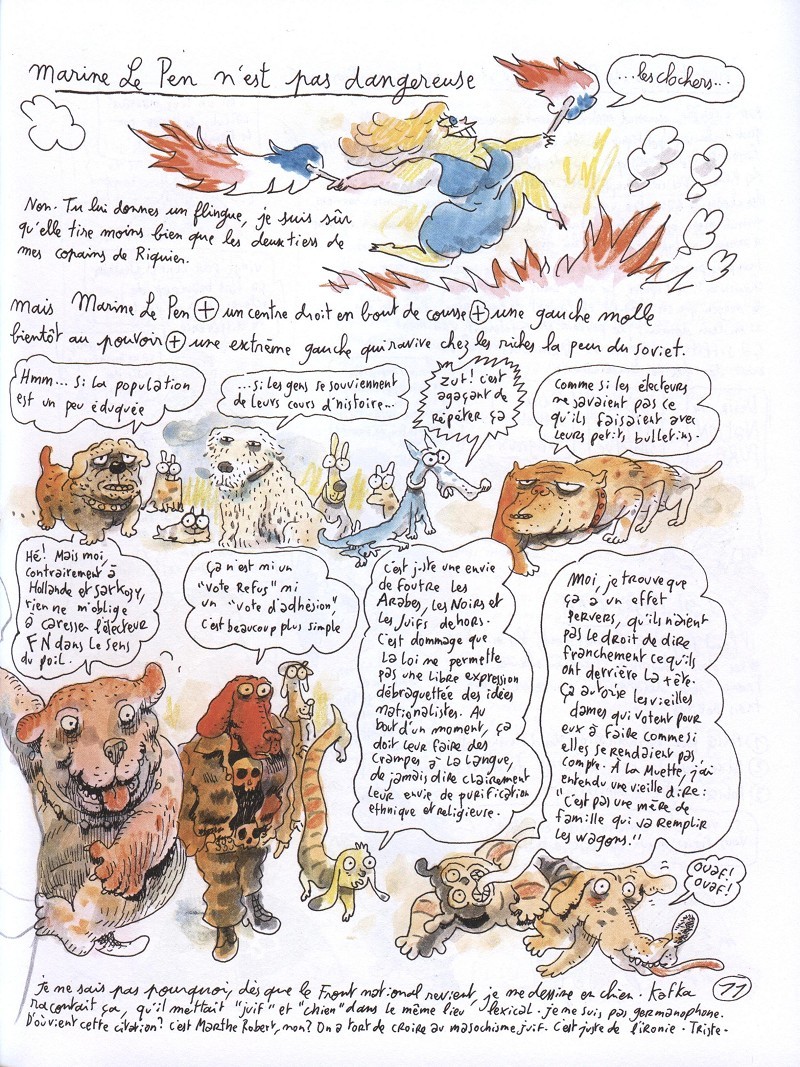 Marine Le Pen n'est pas dangereuse
...les clochers...
Non. Tu lui donnes un flingue, je suis sûr
qu'elle tire moins bien que les deux tiers de
mes copains de Riquien.
Mais Marine Le Pen + un centre droit en bout de course + une gauche molle
bientôt au pouvoir + une extrême gauche qui ravive chez les riches la peur du soviet.
Hmm... Si la population
est un peu éduquée
...si les gens se souviennent
de leurs cours d'histoire...
Zut! c'est
agaçant de
répéter ça
Comme si les électeurs
ne savaient pas ce
qu'ils faisaient avec
leurs petits bulletins.
Hé! Mais moi,
contrairement à
Hollande et Sarkozy,
rien ne m'oblige
à caresser l'électeur
FN dans le sens
du poil.
Ça n'est ni un
"vote refus" ni
un "vote d'adhésion",
c'est beaucoup plus simple
C'est juste une envie
de foutre les
Arabes, les Noirs et
les Juifs dehors.
C'est dommage que
la loi ne permette
pas une libre expression
débraguettée des idées
nationalistes. Au
bout d'un moment, ça
doit leur faire des
crampes à la langue,
de jamais dire clairement
leur envie de purification
ethnique et religieuse.
Moi, je trouve que
ça a un effet
pervers, qu'ils n'aient
pas le droit de dire
franchement ce qu'ils
ont derrière la tête.
Ça autorise les vieilles
dames qui votent pour
eux à faire comme si
elles se rendaient pas
compte. À la Muette, j'ai
entendu une vieille dire:
"C'est pas une mère de
famille qui va remplir
les wagons."
Ouaf!
Ouaf!
je ne sais pas pourquoi, dès que le Front national revient, je me dessine en chien. Kafka
racontait ça, qu'il mettait "juif" et "chien" dans le même lieu lexical. je ne suis pas germanophone.
D'où vient cette citation? c'est Marthe Robert, non? On a tort de croire au masochisme juif. C'est juste de l'ironie. Triste.
11